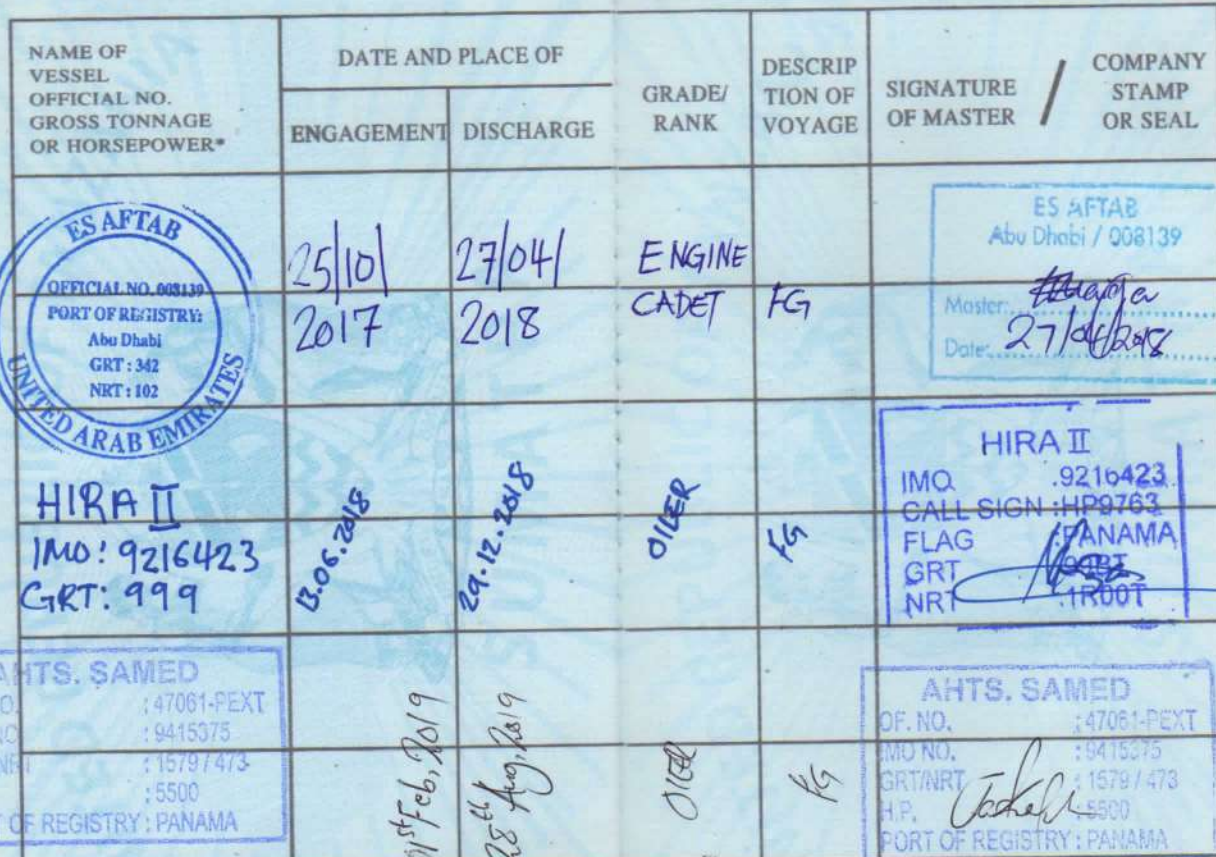 NAME OF
VESSEL
OFFICIAL NO.
GROSS TONNAGE
OR HORSEPOWER*
DATE AND PLACE OF
ENGAGEMENT
DISCHARGE
GRADE/
RANK
DESCRIP
TION OF
VOYAGE
SIGNATURE
OF MASTER
/
COMPANY
STAMP
OR SEAL
ES AFTAB
OFFICIAL NO. 008139
PORT OF REGISTRY:
Abu Dhabi
GRT : 342
NRT : 102
UNITED ARAB EMIRATES
25/10/
2017
27/04/
2018
ENGINE
CADET
FG
ES AFTAB
Abu Dhabi / 008139
Master:
Date: 27/04/2018
HIRA II
IMO: 9216423
GRT: 999
13.06.2018
29.12.2018
OILER
FG
HIRA II
IMO :9216423
CALL SIGN :HP9763
FLAG :PANAMA
GRT
NRT
AHTS. SAMED
: 47061-PEXT
: 9415375
: 1579 / 473
: 5500
OF REGISTRY : PANAMA
01st Feb, 2019
28th Aug, 2019
OILER
FG
AHTS. SAMED
OF. NO. : 47061-PEXT
IMO NO. : 9415375
GRT/NRT : 1579 / 473
H.P. : 5500
PORT OF REGISTRY : PANAMA